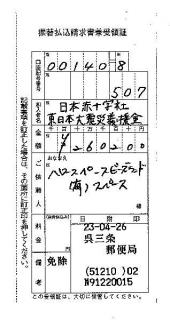 振替払込請求書兼受領証
口座記号番号
00140 8
507
加入者名
日本赤十字社
東日本大震災義援金
金額
千 百 十 万 千 百 十 円
¥260200
ご依頼人
おなまえ
(有)スペース
様
料金
日附印
23-04-26
呉三条
郵便局
備考
免除
(51210)02
N91220015
記載事項を訂正した場合は、その箇所に訂正印を押してください。
この受領証は、大切に保管してください。